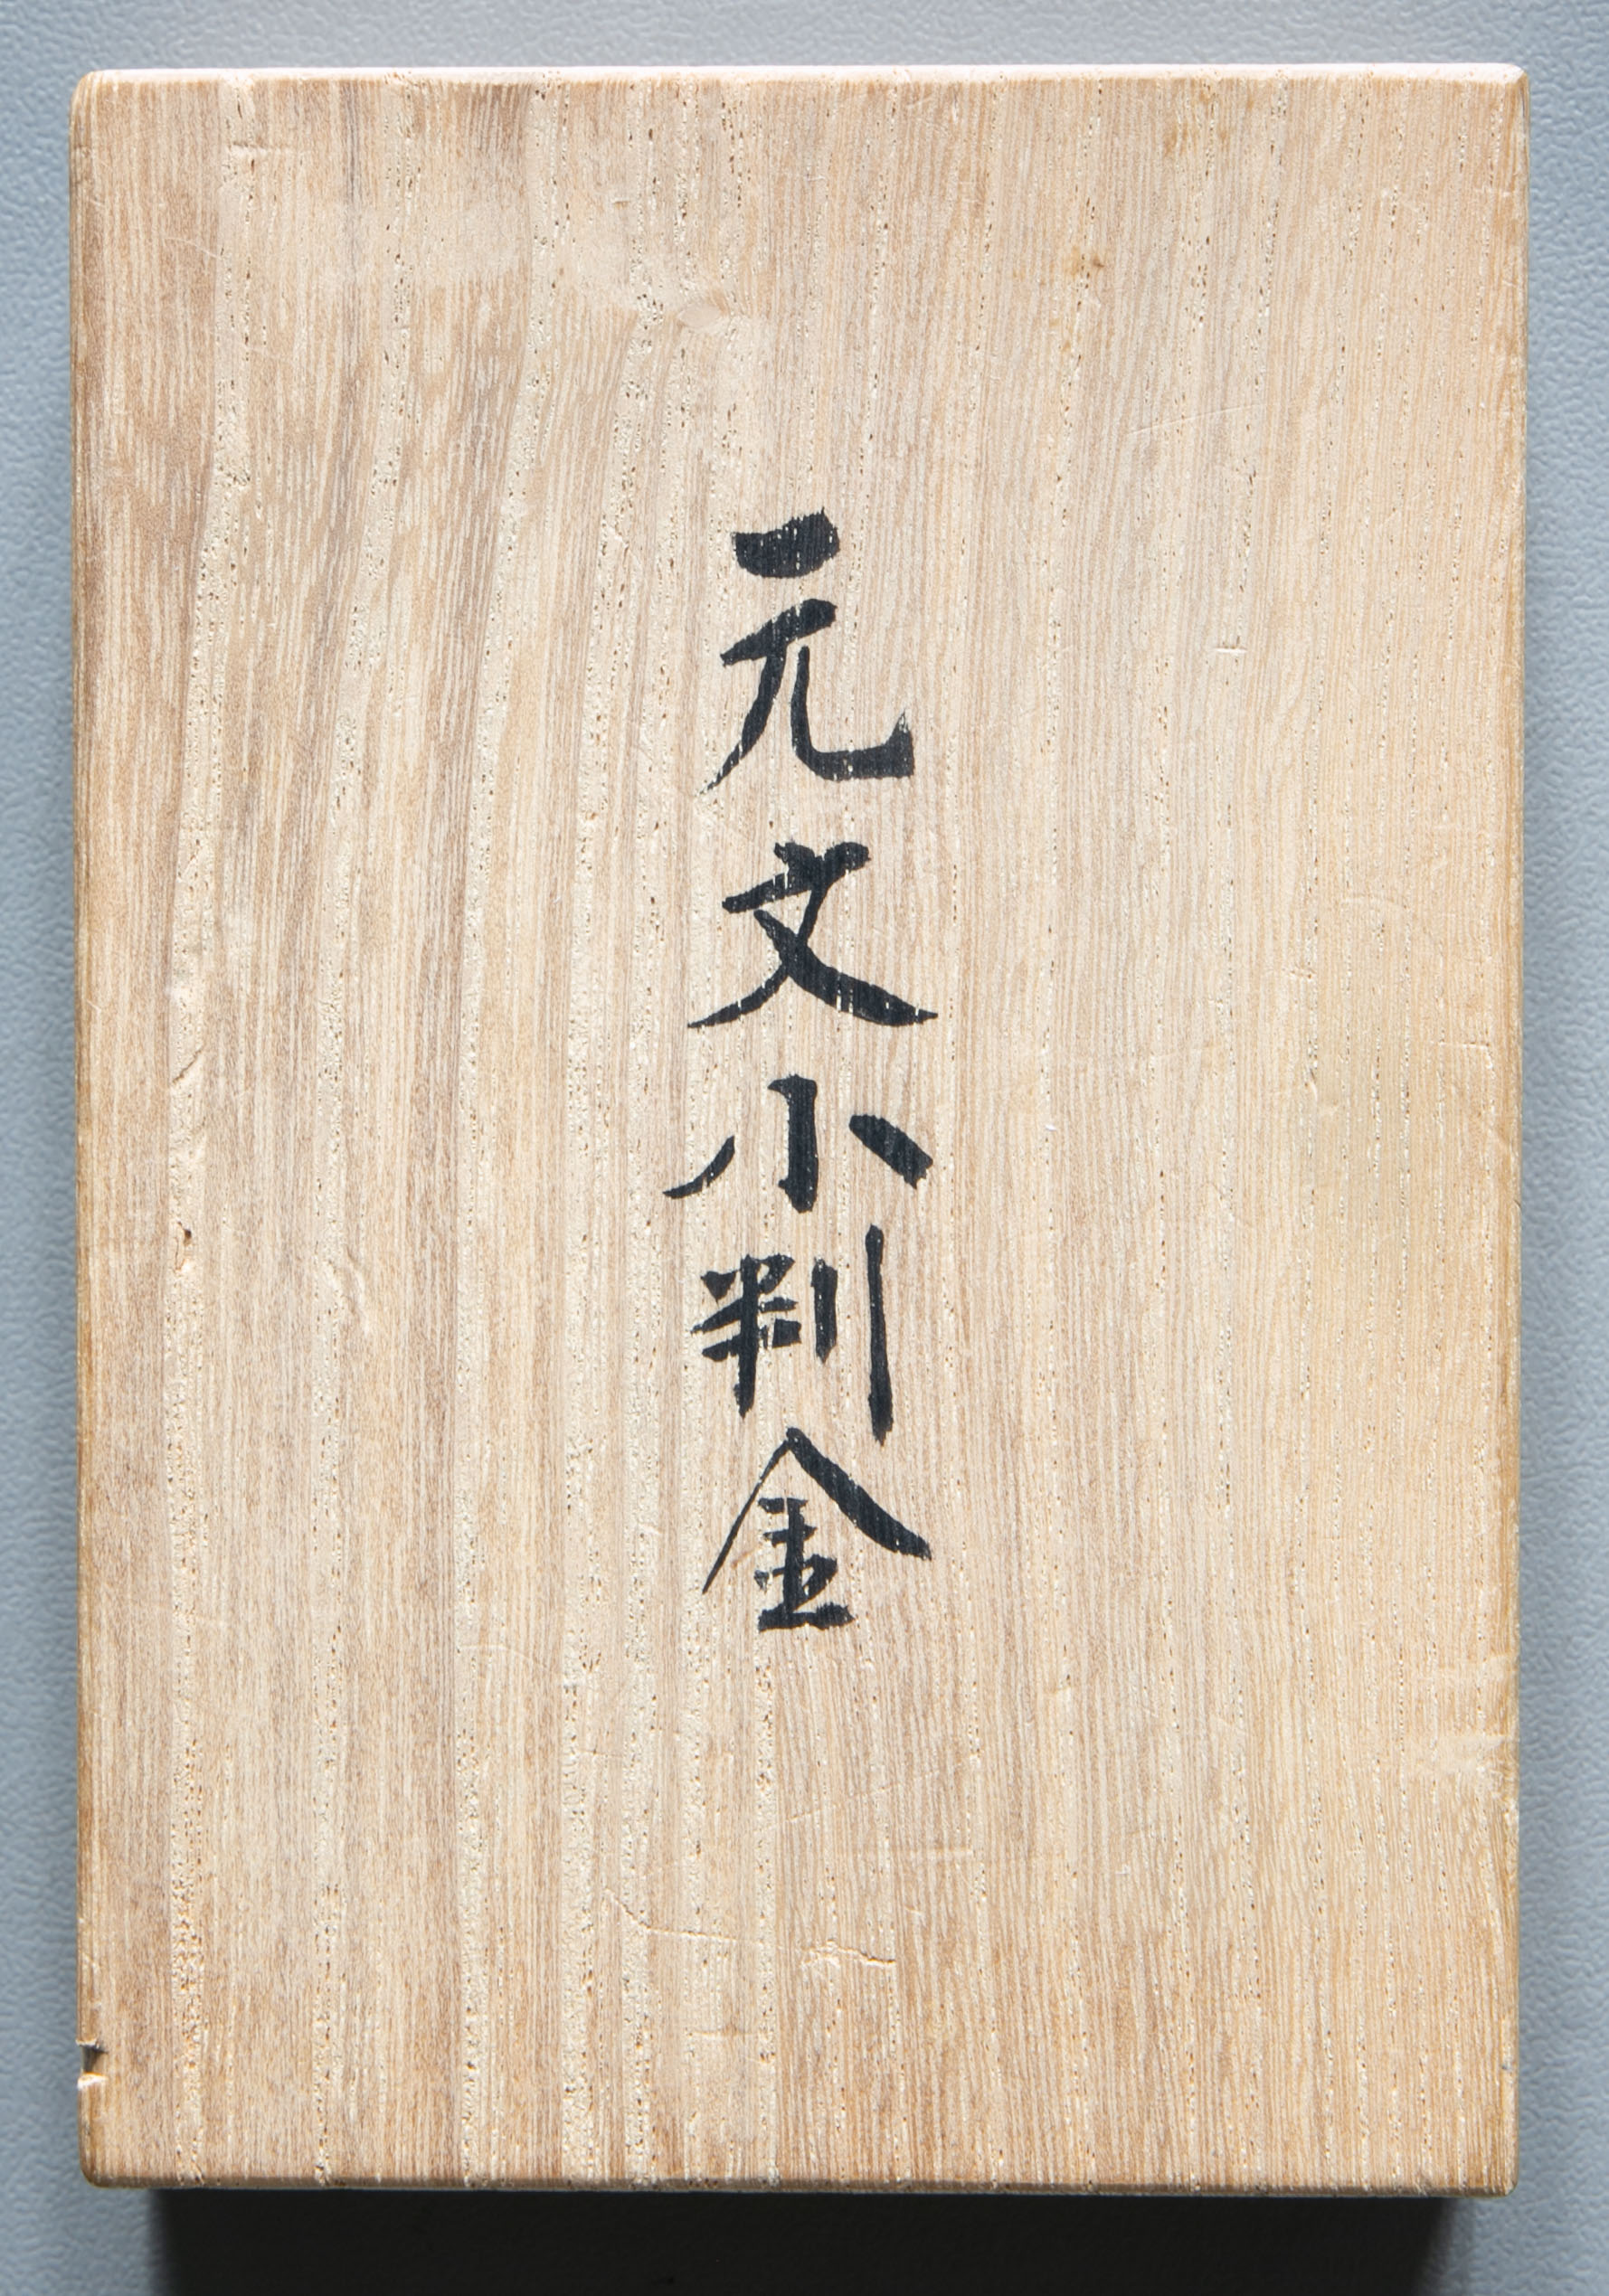 元文小判金